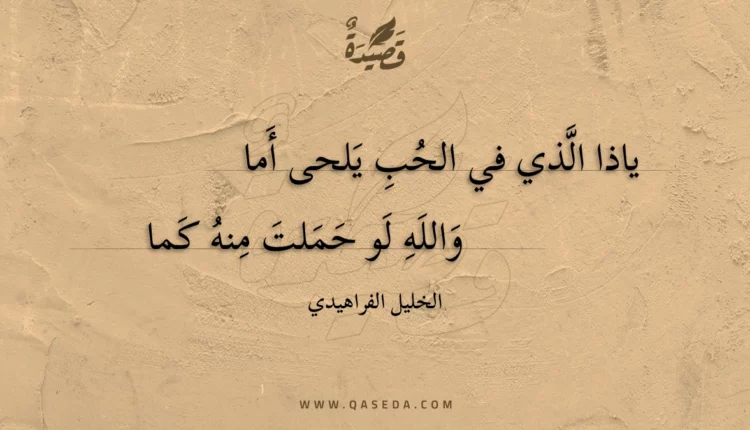 قَصِيدَةٌ
ياذا الَّذي في الحُبِ يَلحى أَما
وَاللَهِ لَو حَمَلتَ مِنهُ كَما
الخليل الفراهيدي
WWW.QASEDA.COM